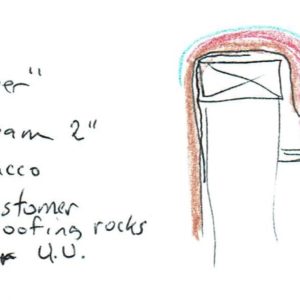 er"
am 2"
cco
stomer
oofing rocks
r U.V.